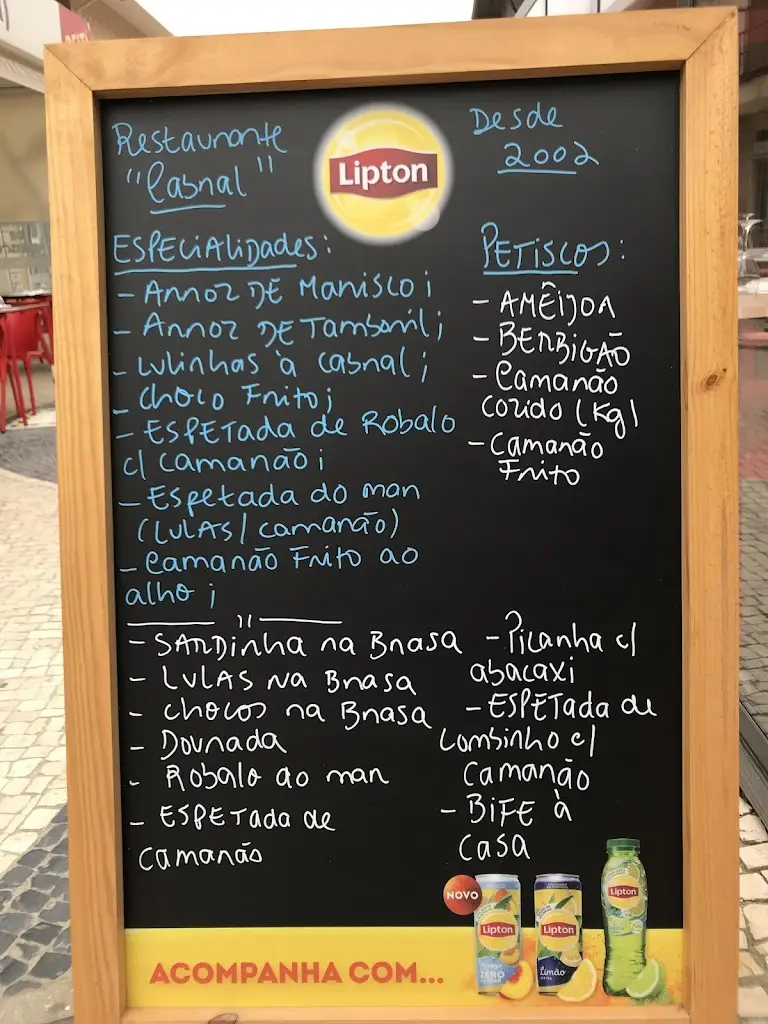 Restaurante
"Cabral"
Lipton
Desde
2002
ESPECIALIDADES:
- ARROZ DE MARISCO;
- ARROZ DE Tamboril;
- Lulinhas à Cabral;
- Choco Frito;
- ESPETADA de Robalo
c/ Camarão;
- Espetada do mar
(LULAS/camarão)
- Camarão Frito ao
alho;
PETISCOS:
- AMÊIJOA
- BERBIGÃO
- Camarão
Cozido (Kg)
- Camarão
Frito
__ " __
- SARDinha na Brasa
- LULAS NA Brasa
- Chocos na Brasa
- Dourada
- Robalo ao mar
- ESPETada de
camarão
- Picanha c/
abacaxi
- ESPETada de
Lombinho c/
Camarão
- BiFE à
casa
NOVO
Lipton
ZERO
Lipton
Limão
Lipton
ACOMPANHA COM...